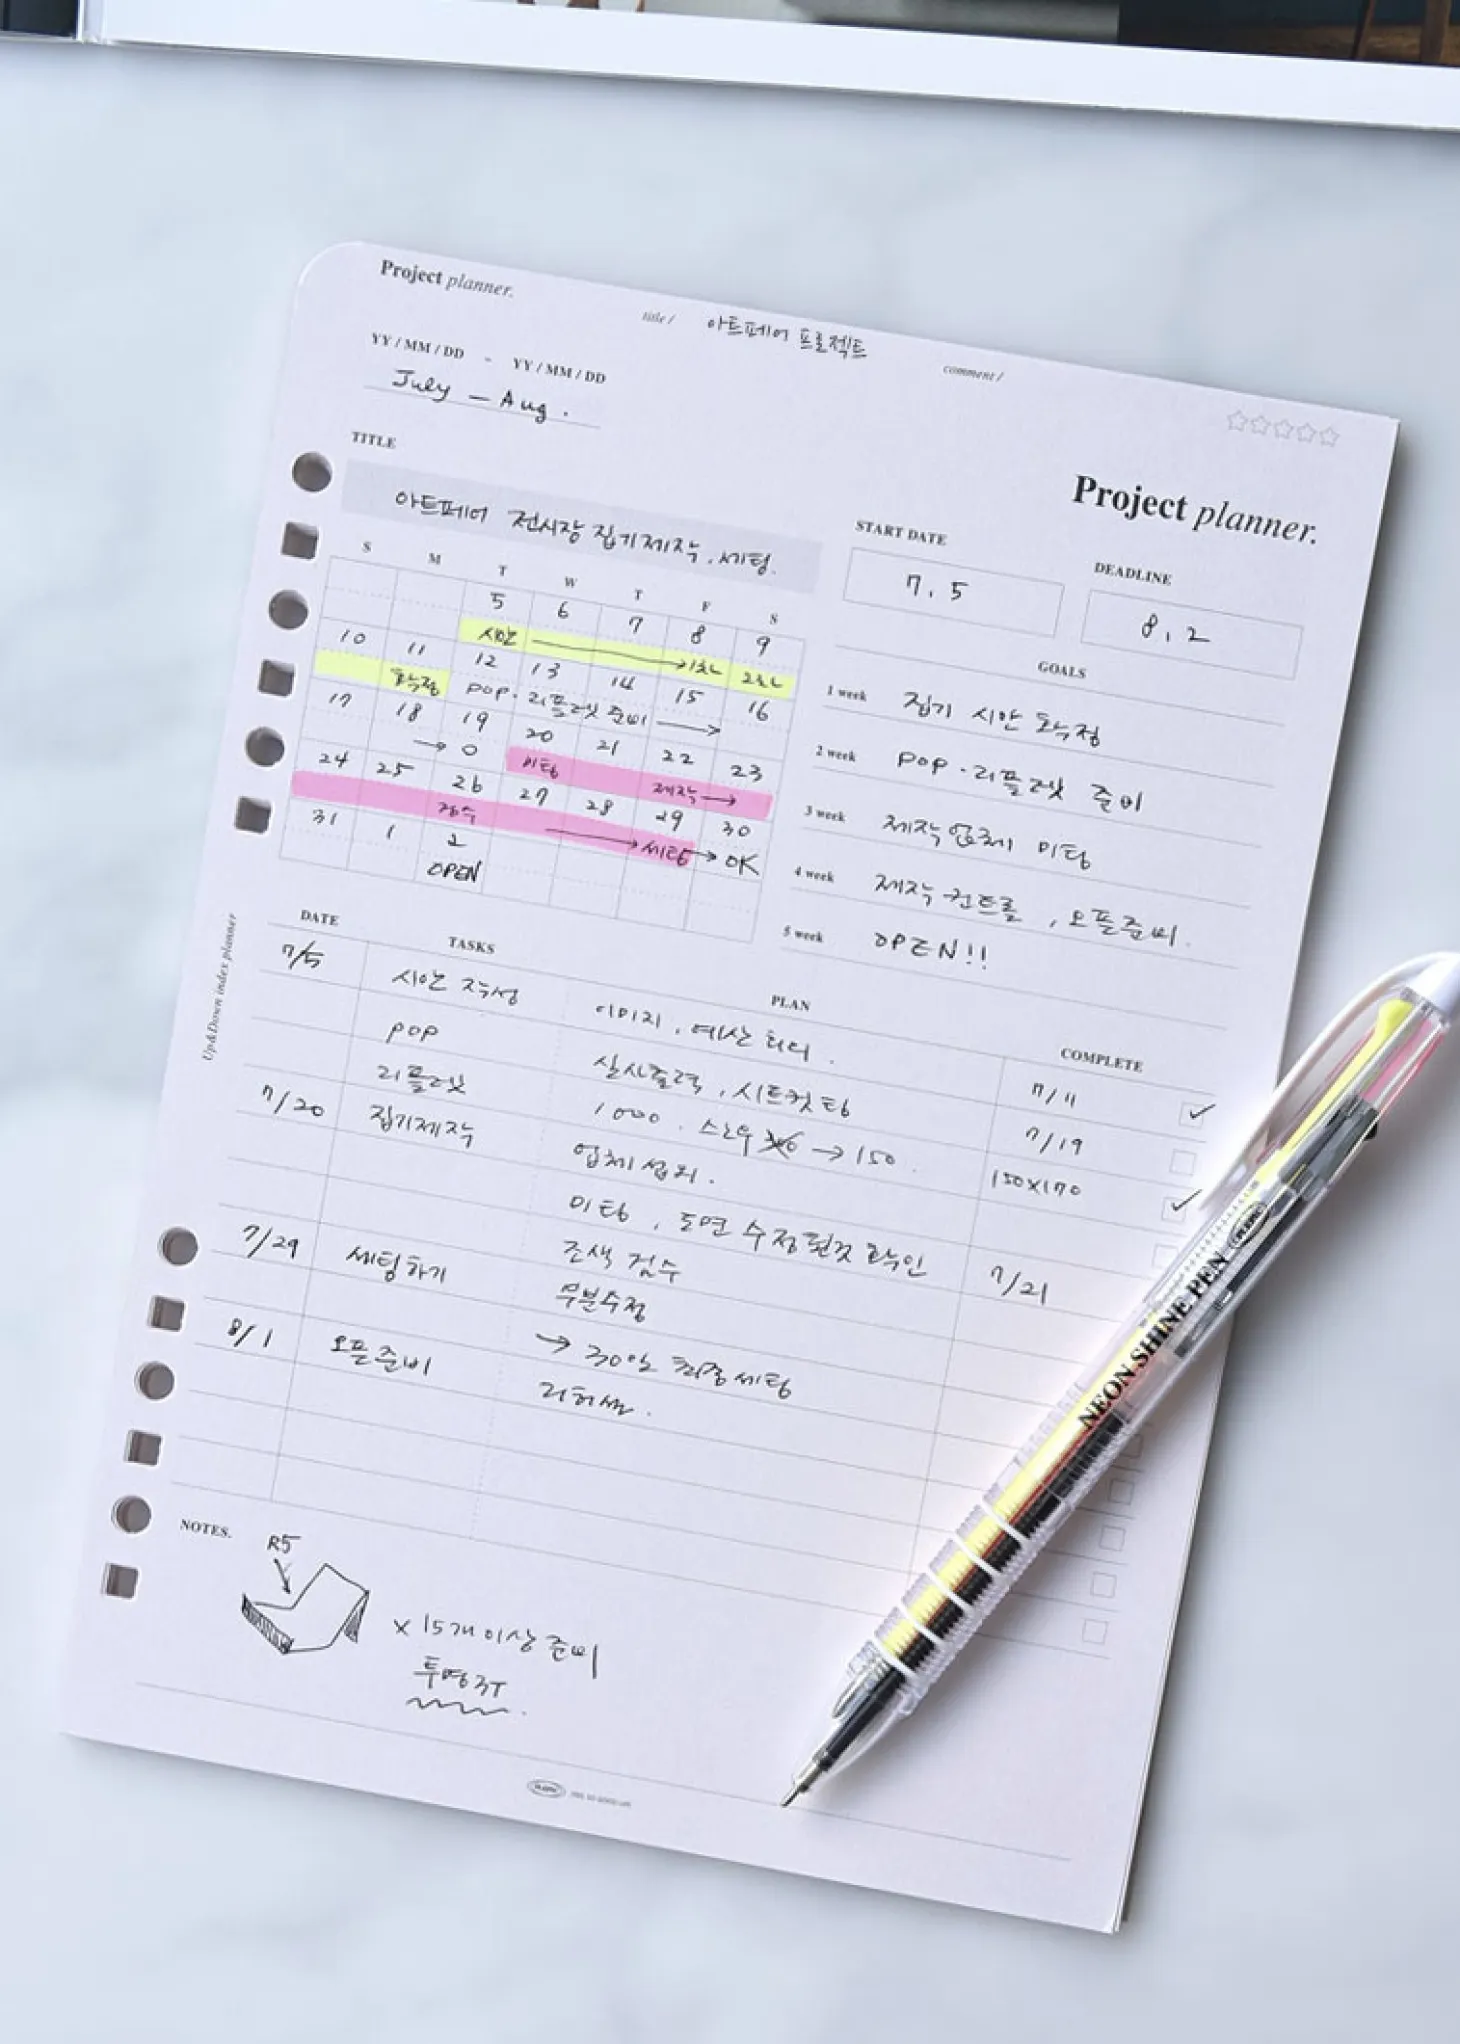 Project planner.
title / 아트페어 프로젝트
comment /
YY / MM / DD - YY / MM / DD
July - Aug.
TITLE
아트페어 전시장 집기제작, 세팅.
Project planner.
START DATE
7. 5
DEADLINE
8. 2
S M T W T F S
5 6 7 8 9
시안 → 1차 2차
10 11 12 13 14 15 16
확정 POP. 리플렛 준비 →
17 18 19 20 21 22 23
→ O 미팅 제작 →
24 25 26 27 28 29 30
검수 → 세팅 → OK
31 1 2
OPEN
GOALS
1 week 집기 시안 확정
2 week POP. 리플렛 준비
3 week 제작업체 미팅
4 week 제작 컨트롤, 오픈준비.
5 week OPEN!!
DATE TASKS PLAN COMPLETE
7/5 시안 작성 이미지, 예산 처리. 7/11 ✓
POP 실사출력, 시트컷팅 7/19
리플렛 1000. 스노우 → 150. 150x170 ✓
7/20 집기제작 업체섭외.
미팅, 도면 수정된것 확인 7/21
조색 검수
7/29 세팅하기 부분수정
→ 30일 최종세팅
8/1 오픈준비 리허설.
Up&Down index planner
NOTES.
R5
x 15개 이상 준비
투명 3T
NEON SHINE PEN